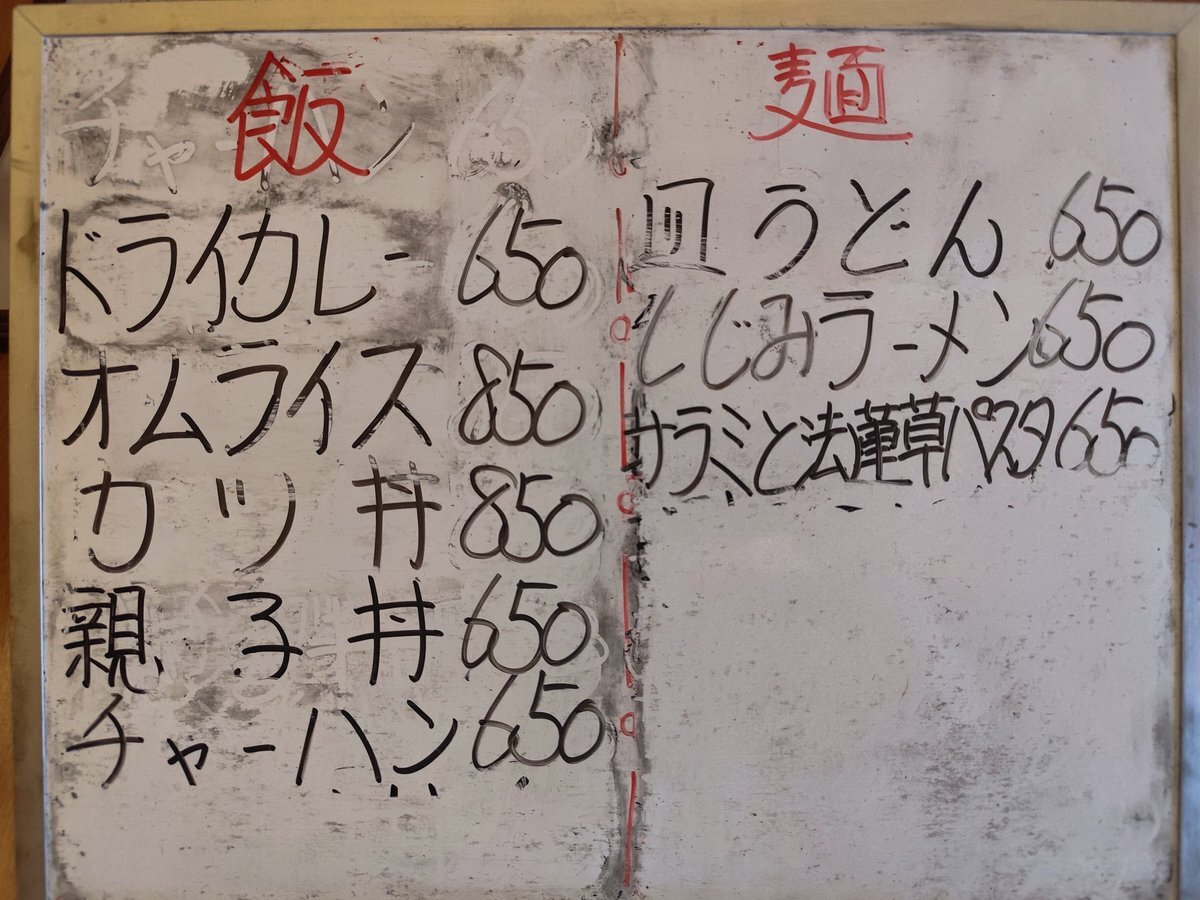 飯
ドライカレー 650
オムライス 850
カツ丼 850
親子丼 650
チャーハン 650
麺
皿うどん 650
しじみラーメン 650
サラミと法蓮草パスタ 650